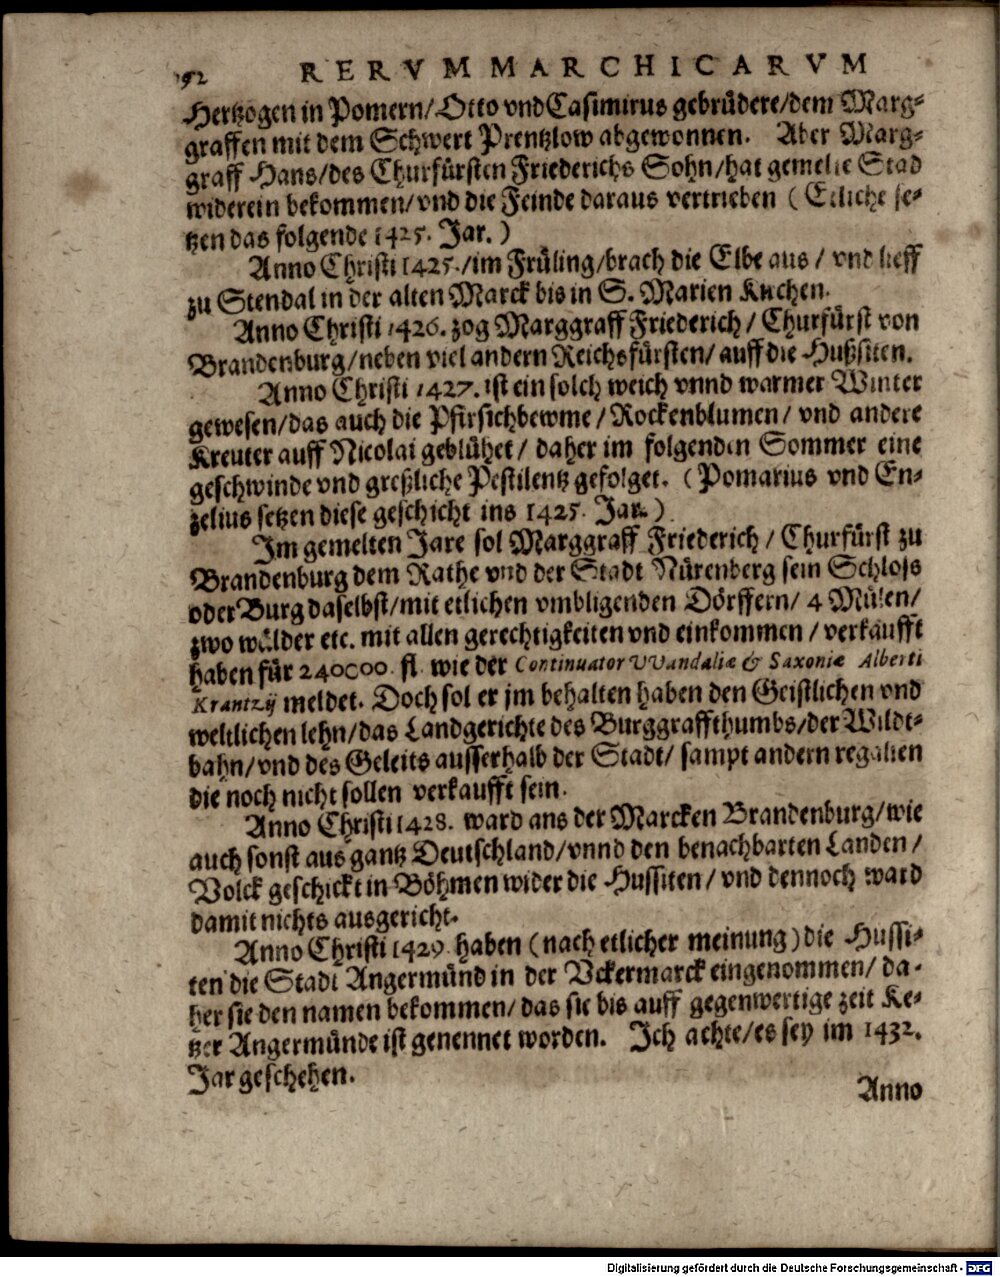 192 RERVM MARCHICARVM
Hertzogen in Pomern/ Otto vnd Casimirus gebrüdere/ dem Marg-
graffen mit dem Schwert Prentzlow abgewonnen. Aber Marg-
graff Hans/ des Churfürsten Friederichs Sohn/ hat gemelte Stad
widerein bekommen/ vnd die Feinde daraus vertrieben ( Etliche se-
tzen das folgende 1425. Jar. )
Anno Christi 1425./ im Früling/ brach die Elbe aus / vnd lieff
zu Stendal in der alten Marck bis in S. Marien Kirchen.
Anno Christi 1426. zog Marggraff Friederich / Churfürst von
Brandenburg/ neben viel andern Reichsfürsten/ auff die Hußsiten.
Anno Christi 1427. ist ein solch weich vnnd warmer Winter
gewesen/ das auch die Pfirsichbewme / Rockenblumen / vnd andere
Kreuter auff Nicolai geblühet / daher im folgenden Sommer eine
geschwinde vnd greßliche Pestilentz gefolget. ( Pomarius vnd En-
zelius setzen diese geschicht ins 1425. Jar. )
Im gemelten Jare sol Marggraff Friederich / Churfürst zu
Brandenburg dem Rathe vnd der Stadt Nürenberg sein Schloss
oder Burg daselbst/ mit etlichen vmbligenden Dörffern/ 4 Mülen/
zwo wälder etc. mit allen gerechtigkeiten vnd einkommen / verkaufft
haben für 240000. fl. wie der Continuator VVandaliæ & Saxoniæ Alberti
Krantzij meldet. Doch sol er jm behalten haben den Geistlichen vnd
weltlichen lehn/ das Landgerichte des Burggraffthumbs/ der Wildt-
bahn/ vnd des Geleits ausserhalb der Stadt/ sampt andern regalien
die noch nicht sollen verkaufft sein.
Anno Christi 1428. ward ans der Marcken Brandenburg/ wie
auch sonst aus gantz Deutschland/ vnnd den benachbarten Landen /
Volck geschickt in Böhmen wider die Hussiten / vnd dennoch ward
damit nichts ausgericht.
Anno Christi 1429. haben ( nach etlicher meinung ) die Hussi-
ten die Stadt Angermünd in der Vckermarck eingenommen/ da-
her sie den namen bekommen/ das sie bis auff gegenwertige zeit Ke-
tzer Angermünde ist genennet worden. Ich achte/ es sey im 1432.
Jar geschehen.
Anno
Digitalisierung gefördert durch die Deutsche Forschungsgemeinschaft - DFG